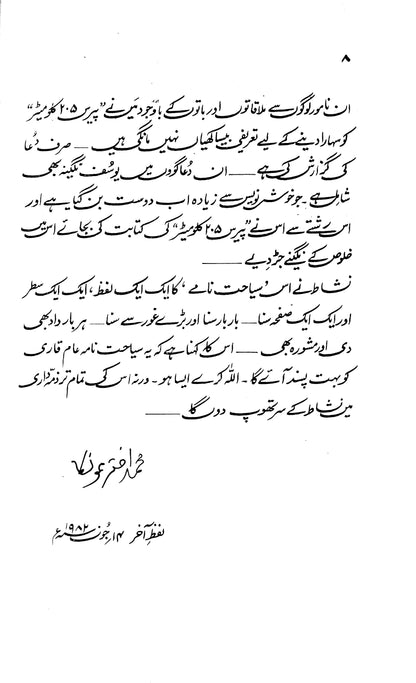 ۸
ان نامور لوگوں سے ملاقاتوں اور باتوں کے باوجود میں نے ”پیرس ۲۰۵ کلومیٹر“
کو سہارا دینے کے لیے تعریفی بیساکھیاں نہیں مانگی ہیں ــــ صرف دُعا
کی گزارش کی ہے ــــ ان دُعاگوؤں میں یوسف نگینہ بھی
شامل ہے ۔ جو خوشنویس سے زیادہ اب دوست بن گیا ہے اور
اس رشتے سے اس نے ”پیرس ۲۰۵ کلومیٹر“ کی کتابت کی بجائے اس میں
خلوص کے نگینے جڑ دیے ــــــــ
نشاط نے اس ’سیاحت نامے‘ کا ایک ایک لفظ، ایک ایک سطر
اور ایک ایک صفحہ سنا ــ بار بار سنا اور بڑے غور سے سنا ــ ہر بار داد بھی
دی اور مشورہ بھی ــــ اس کا کہنا ہے کہ یہ سیاحت نامہ عام قاری
کو بہت پسند آئے گا ۔ اللہ کرے ایسا ہو ۔ ورنہ اس کی تمام تر ذمّہ داری
میں نشاط کے سر تھوپ دوں گا ــــــــ
محمد اختر مونکا
لفظِ آخر ۱۴؍ جُون ۱۹۸۲ء